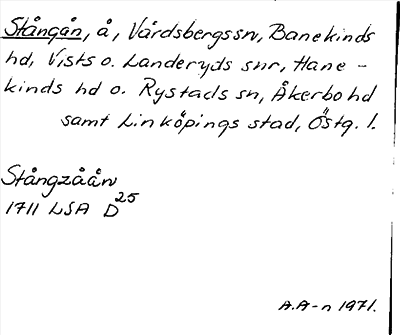 Stångån, å, Vårdsbergs sn, Bankekinds
hd, Vists o. Landeryds snr, Hane-
kinds hd o. Rystads sn, Åkerbo hd
samt Linköpings stad, Östg. l.
Stångzåån
1711 LSA D25
A.A-n 1971.